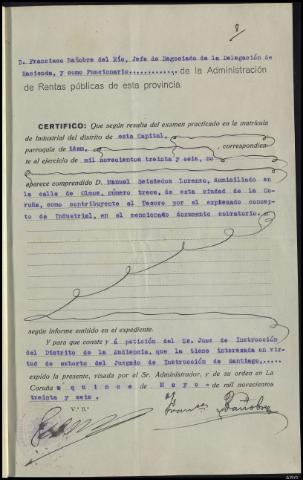 8
D. Francisco Bañobre del Río, Jefe de Negociado de la Delegación de
Hacienda, y como Funcionario............ de la Administración
de Rentas públicas de esta provincia.
CERTIFICO: Que según resulta del examen practicado en la matrícula
de Industrial del distrito de esta Capital,
parroquia de idem, correspondien-
te al ejercicio de mil novecientos treinta y seis, no
aparece comprendido D. Manuel Lorenzo, domiciliado en
la calle de Olmos, número trece, de esta ciudad de la Co-
ruña, como contribuyente al Tesoro por el expresado concep-
to de Industrial, en el mencionado documento cobratorio.
según informe emitido en el expediente.
Y para que conste y á petición del Sr. Juez de Instrucción
del Distrito de la Audiencia, que la tiene interesada en vir-
tud de exhorto del Juzgado de Instrucción de Santiago,.....
expido la presente, visada por el Sr. Administrador, y de su orden en La
Coruña a quince de Mayo de mil novecientos
treinta y seis.
V.º B.º
Bañobre